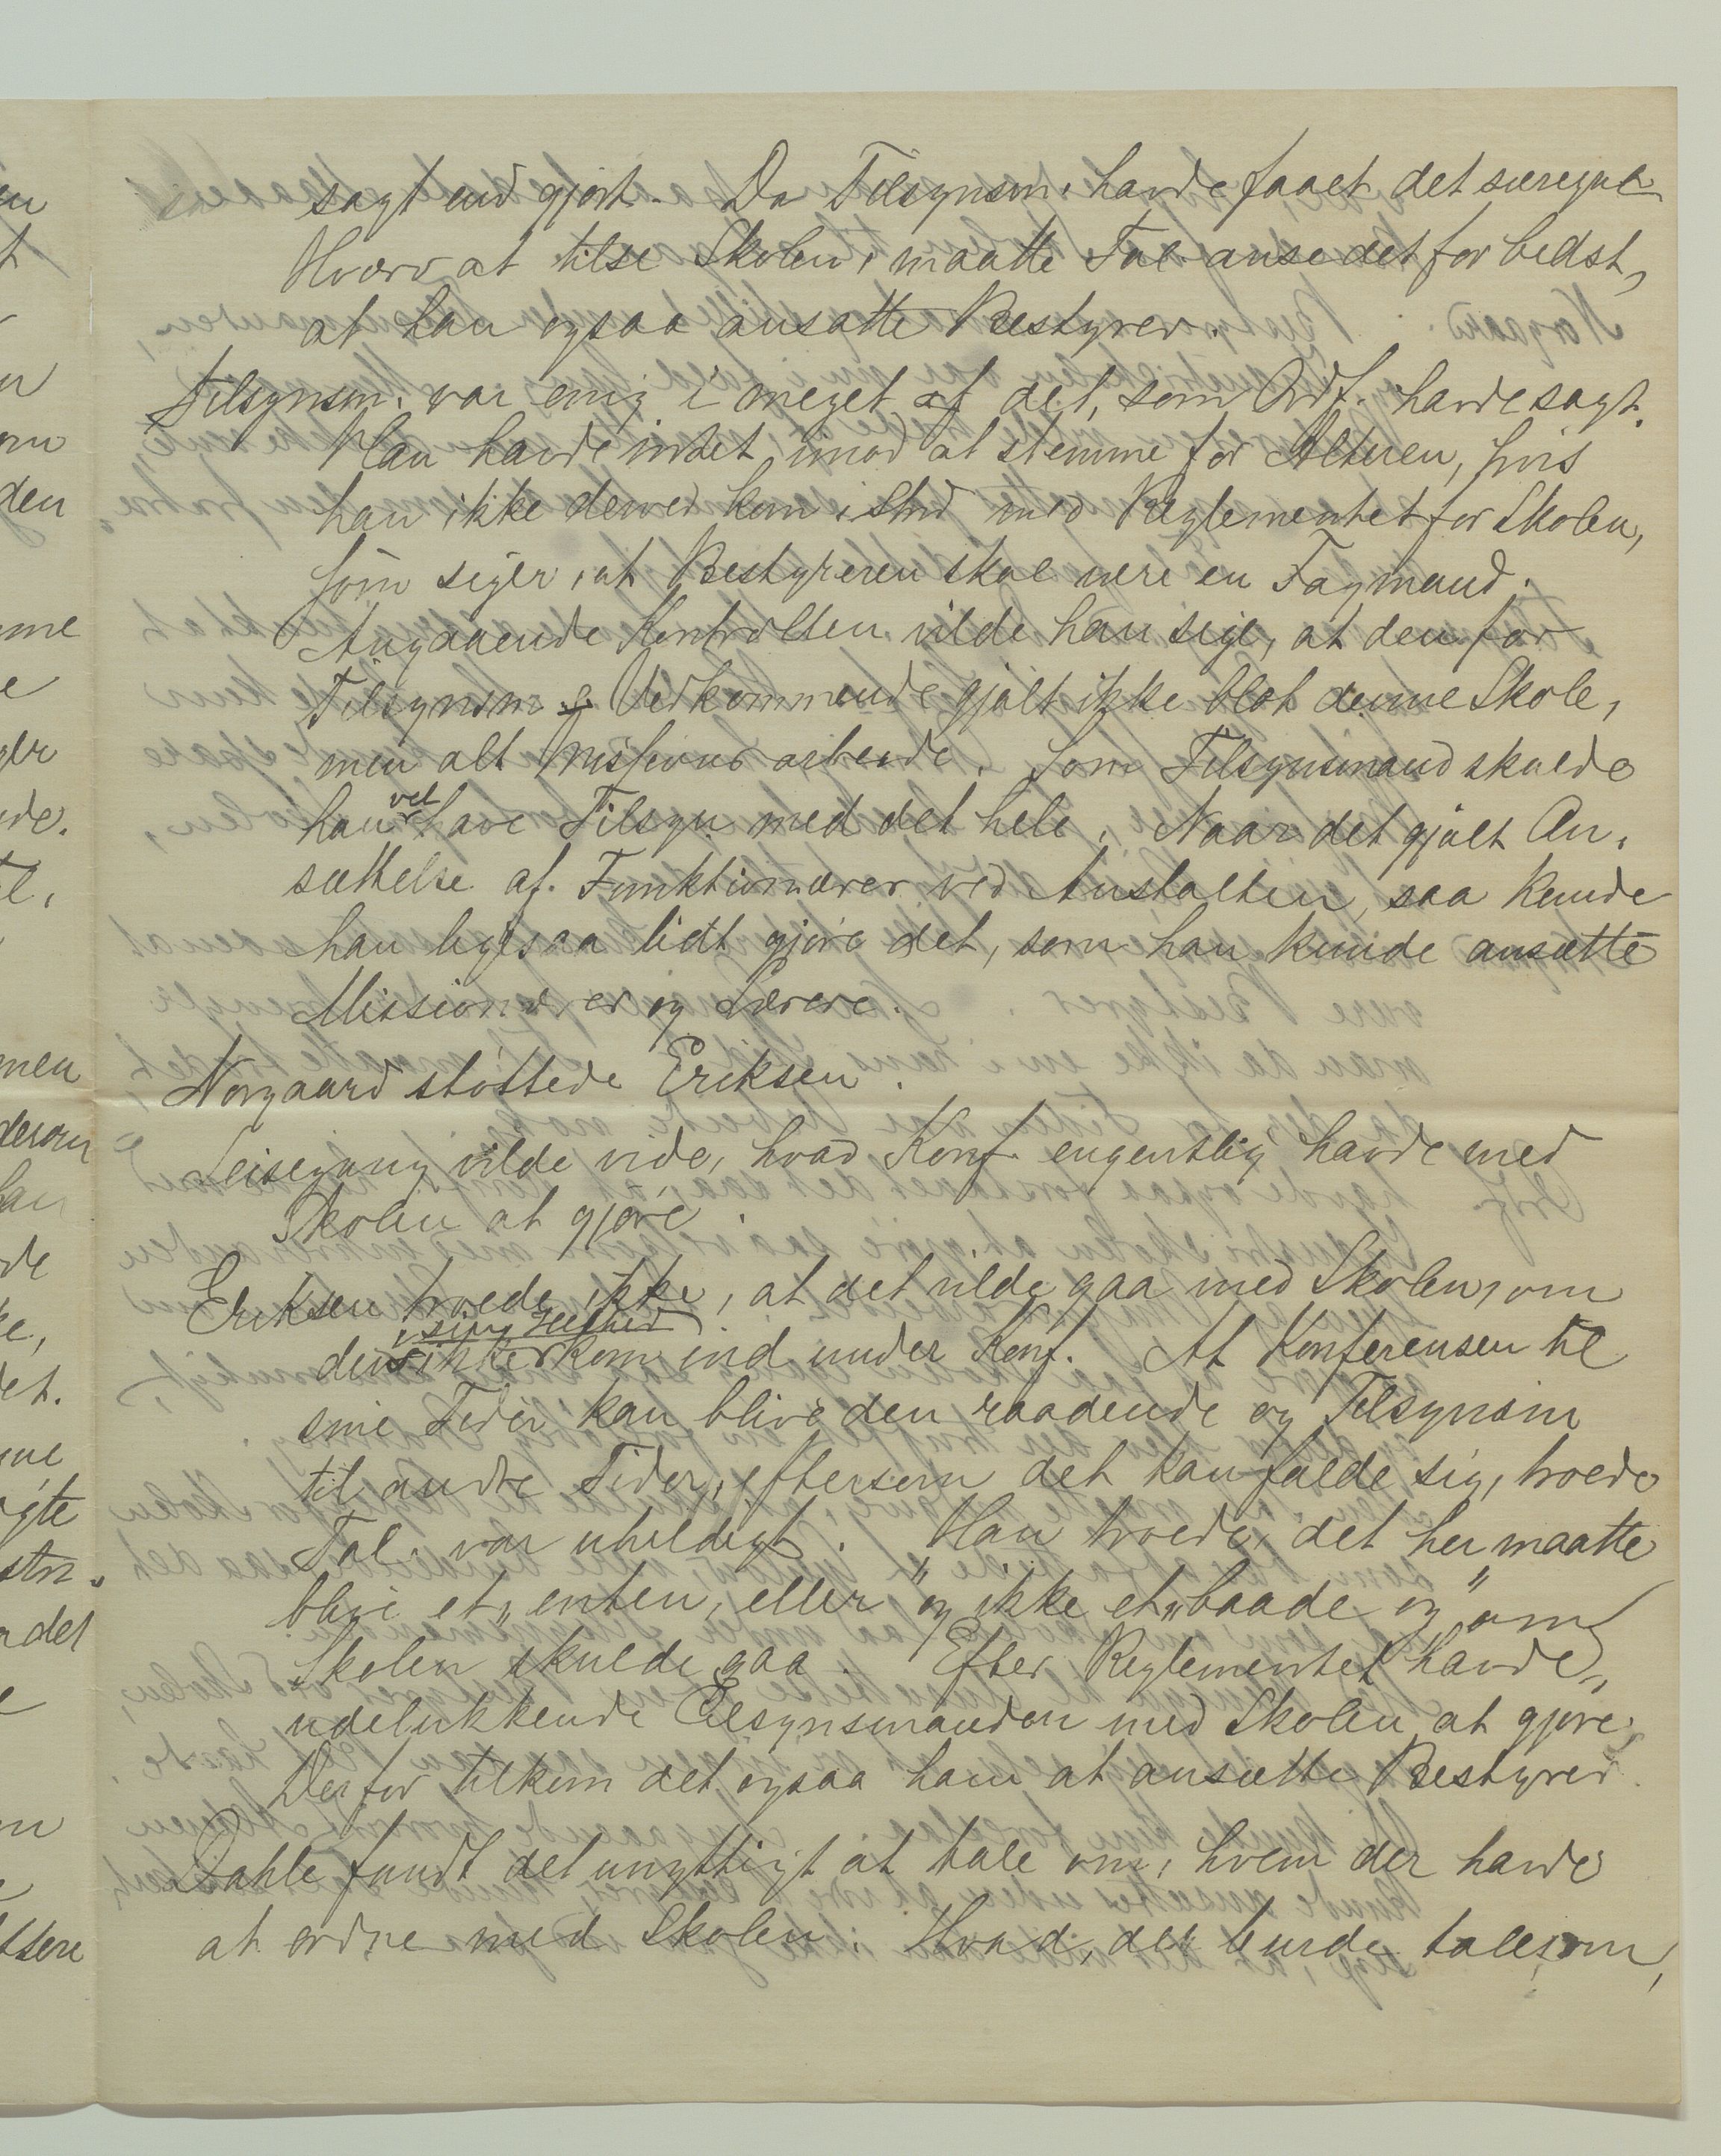 sagt end gjort. Da Tilsynsm. havde faaet det særegne
Hverv at tilse Skolen, maatte Tal. anse det for bedst,
at han ogsaa ansatte Bestyrer.
Tilsynsm. var enig i meget af det, som Ordf. havde sagt.
Han havde intet imod at stemme for Alteren, hvis
han ikke derved kom i Strid med Reglementet for Skolen,
som siger, at Bestyreren skal være en Fagmand.
Angaaende Kontrollen vilde han sige, at den for
Tilsynsm.s Vedkommende gjalt ikke blot denne Skole,
men alt Missionsarbeide. Som Tilsynsmand skulde
han vel have Tilsyn med det hele. Naar det gjalt An-
sættelse af Funktionærer ved Anstalten, saa kunde
han ligesaa lidt gjøre det, som han kunde ansætte
Missionærer og Lærere.
Norgaard støttede Eriksen.
Leisegang vilde vide, hvad Konf. engentlig havde med
Skolen at gjøre.
Eriksen troede ikke, at det vilde gaa med Skolen, om
den i sin Helhed ikke kom ind under Konf. At Konferensen til
sine Tider kan blive den raadende og Tilsynsm
til andre Tider, eftersom det kan falde sig, troede
Tal. var uheldigt. Han troede, det her maatte
blive et „enten, eller" og ikke et „baade og" om
Skolen skulde gaa. Efter Reglementet havde
udelukkende Tilsynsmanden med Skolen at gjøre,
Derfor tilkom det ogsaa ham at ansætte Bestyrer.
Dahle fandt det unyttigt at tale om, hvem der havde
at ordne med Skolen. Hvad, der burde tales om,